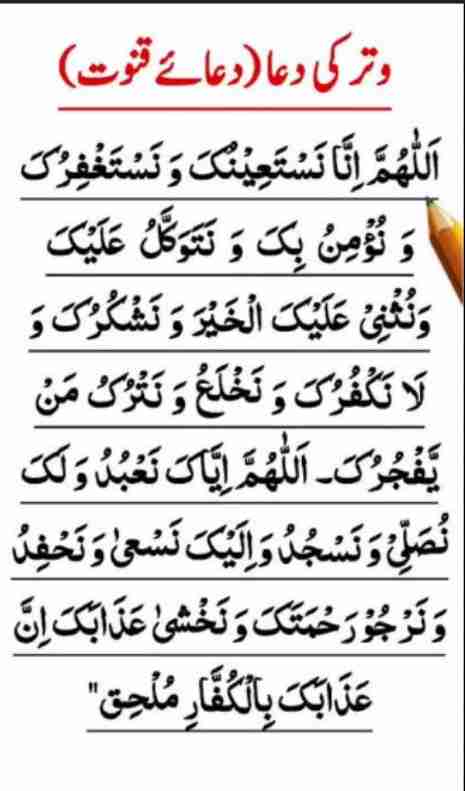 وتر کی دعا (دعائے قنوت)
اَللّٰهُمَّ اِنَّا نَسْتَعِيْنُكَ وَ نَسْتَغْفِرُكَ
وَ نُؤْمِنُ بِكَ وَ نَتَوَكَّلُ عَلَيْكَ
وَنُثْنِيْ عَلَيْكَ الْخَيْرَ وَ نَشْكُرُكَ وَ
لَا نَكْفُرُكَ وَ نَخْلَعُ وَ نَتْرُكُ مَنْ
يَّفْجُرُكَ۔ اَللّٰهُمَّ اِيَّاكَ نَعْبُدُ وَ لَكَ
نُصَلِّيْ وَ نَسْجُدُ وَ اِلَيْكَ نَسْعٰى وَ نَحْفِدُ
وَ نَرْجُوْ رَحْمَتَكَ وَ نَخْشٰى عَذَابَكَ اِنَّ
عَذَابَكَ بِالْكُفَّارِ مُلْحِق"